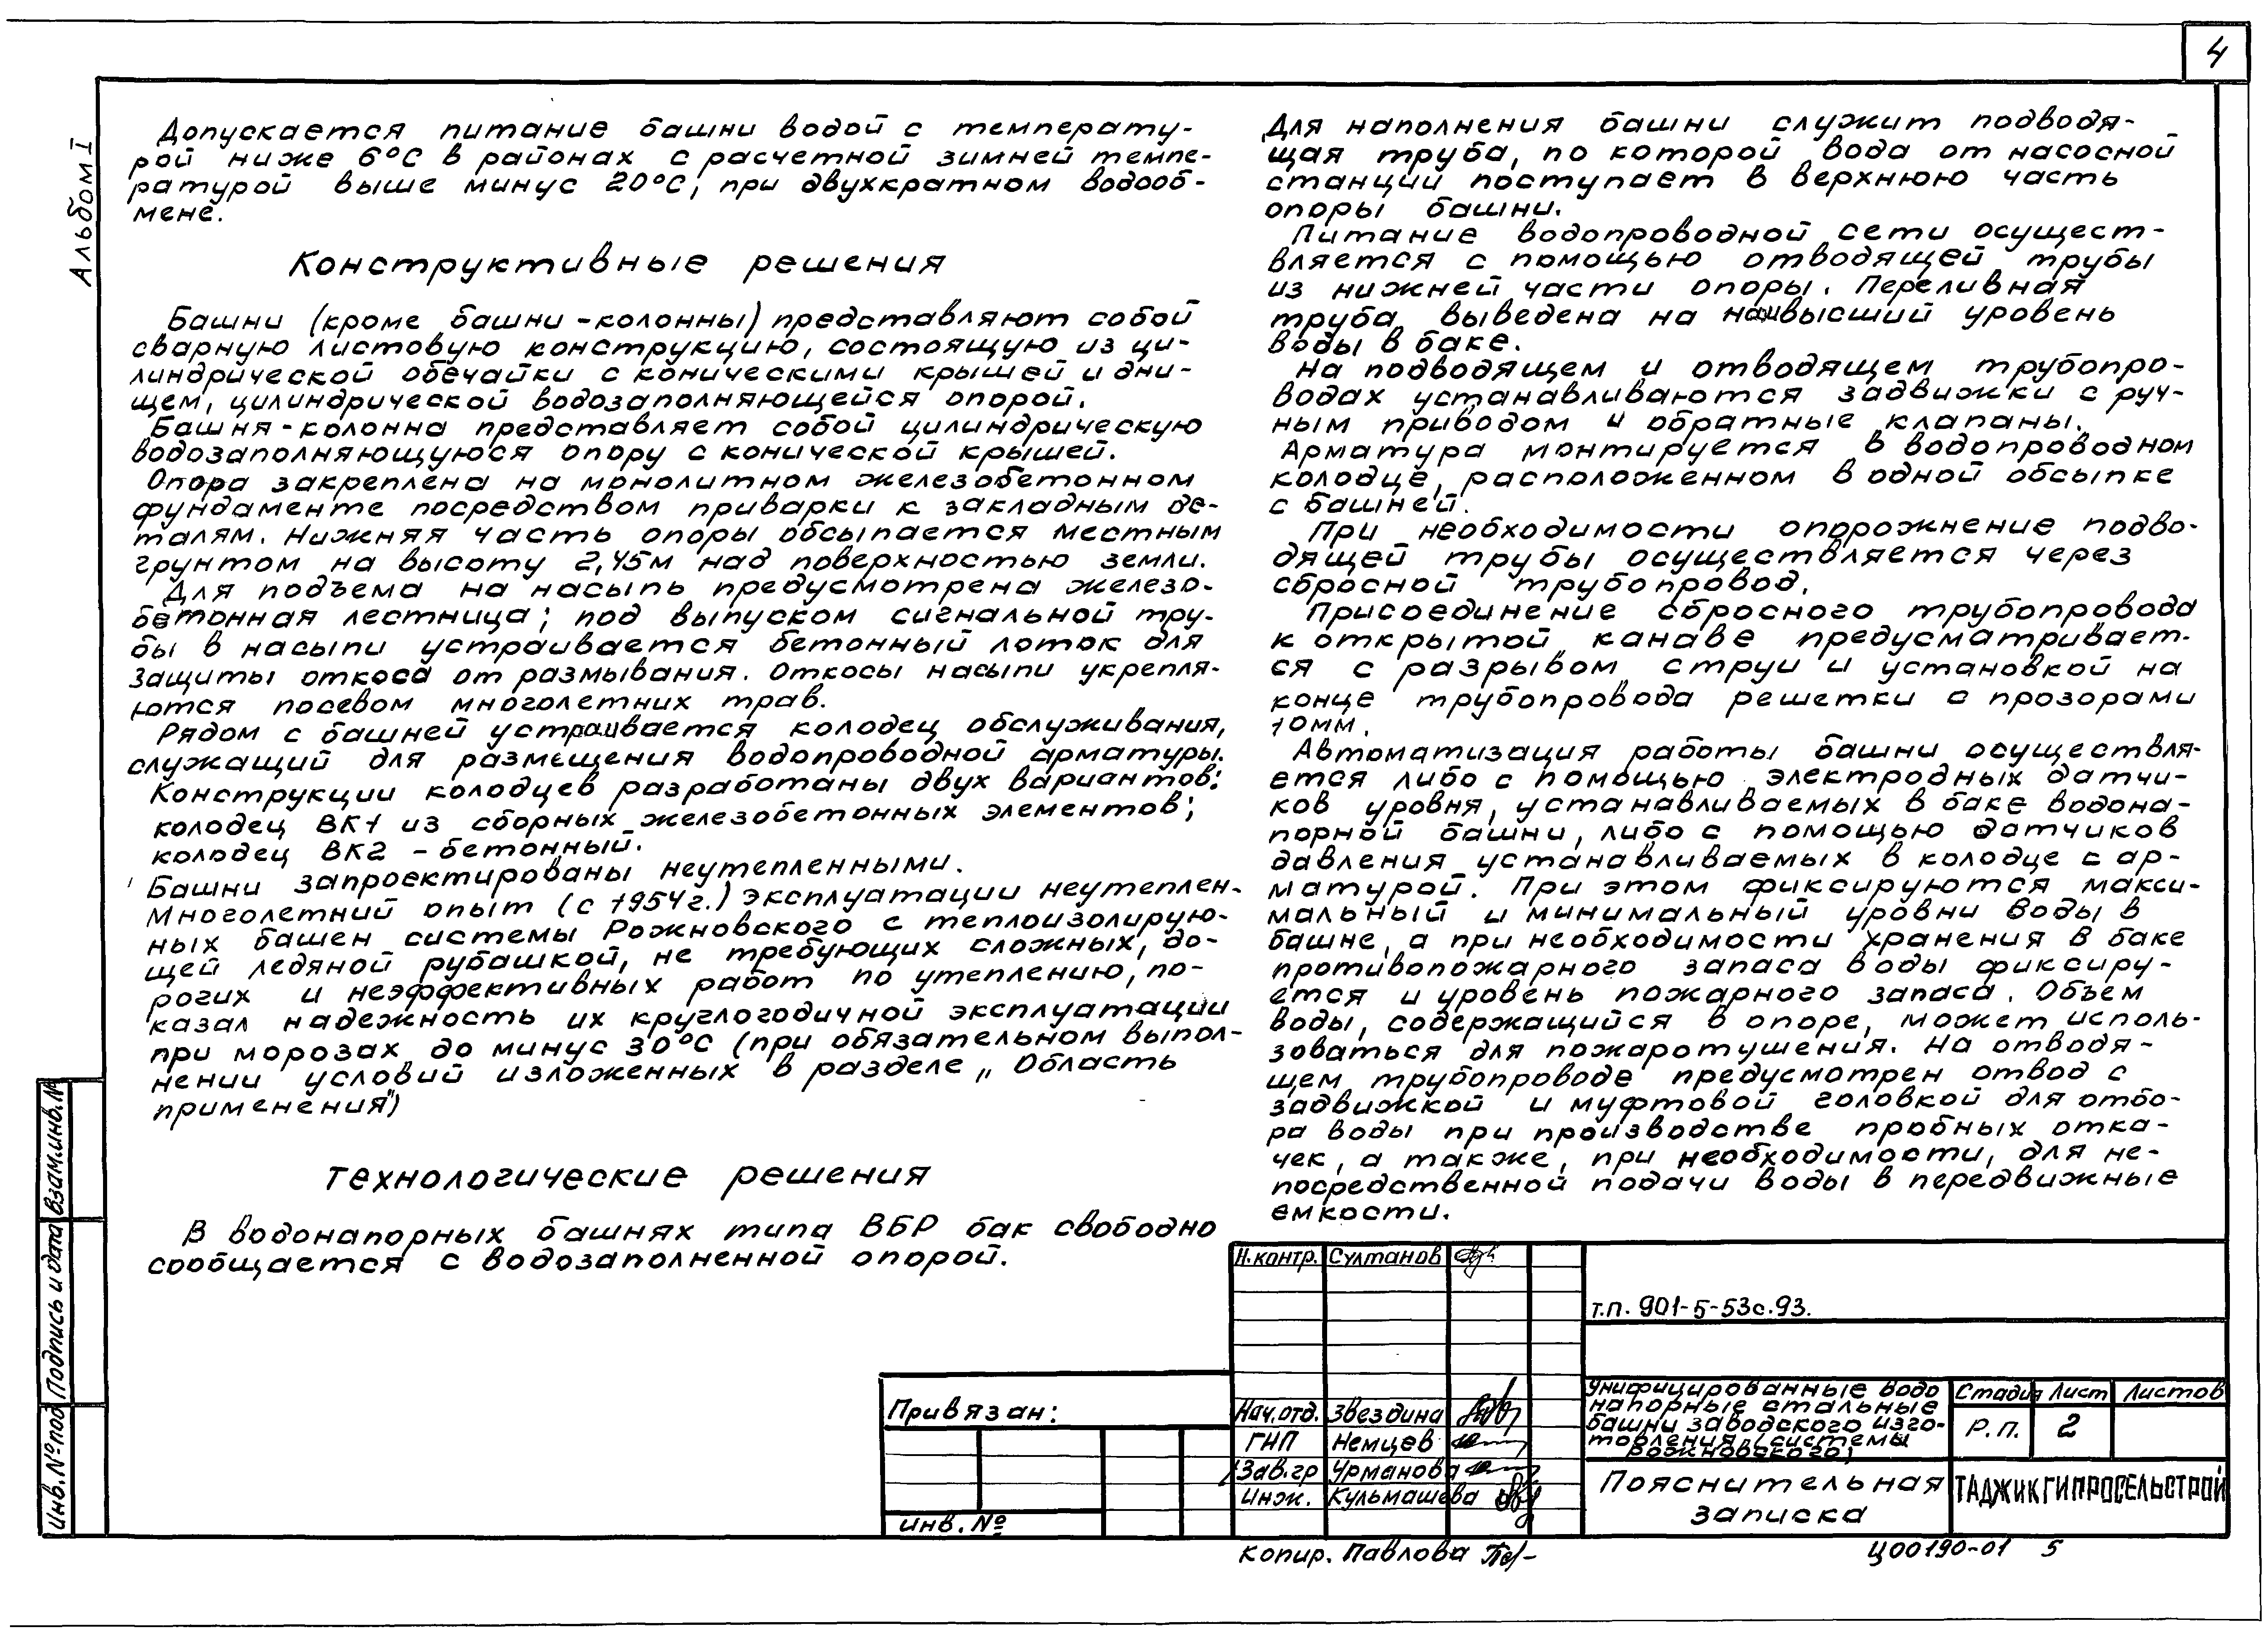 4
Альбом I
Допускается питание башни водой с температу-
рой ниже 6°С в районах с расчетной зимней темпе-
ратурой выше минус 20°С, при двухкратном водооб-
мене.
Конструктивные решения
Башни (кроме башни-колонны) представляют собой
сварную листовую конструкцию, состоящую из ци-
линдрической обечайки с коническими крышей и дни-
щем, цилиндрической водозаполняющейся опорой.
Башня-колонна представляет собой цилиндрическую
водозаполняющуюся опору с конической крышей.
Опора закреплена на монолитном железобетонном
фундаменте посредством приварки к закладным де-
талям. Нижняя часть опоры обсыпается местным
грунтом на высоту 2,45м над поверхностью земли.
Для подъема на насыпь предусмотрена железо-
бетонная лестница; под выпуском сигнальной тру-
бы в насыпи устраивается бетонный лоток для
защиты откоса от размывания. Откосы насыпи укрепля-
ются посевом многолетних трав.
Рядом с башней устраивается колодец обслуживания,
служащий для размещения водопроводной арматуры.
Конструкции колодцев разработаны двух вариантов:
колодец ВК1 из сборных железобетонных элементов;
колодец ВК2 - бетонный.
Башни запроектированы неутепленными.
Многолетний опыт (с 1954г.) эксплуатации неутеплен-
ных башен системы Рожновского с теплоизолирую-
щей ледяной рубашкой, не требующих сложных, до-
рогих и неэффективных работ по утеплению, по-
казал надежность их круглогодичной эксплуатации
при морозах до минус 30°С (при обязательном выпол-
нении условий изложенных в разделе „Область
применения")
Технологические решения
В водонапорных башнях типа ВБР бак свободно
сообщается с водозаполненной опорой.
Для наполнения башни служит подводя-
щая труба, по которой вода от насосной
станции поступает в верхнюю часть
опоры башни.
Питание водопроводной сети осущест-
вляется с помощью отводящей трубы
из нижней части опоры. Переливная
труба выведена на наивысший уровень
воды в баке.
На подводящем и отводящем трубопро-
водах устанавливаются задвижки с руч-
ным приводом и обратные клапаны.
Арматура монтируется в водопроводном
колодце, расположенном в одной обсыпке
с башней.
При необходимости опорожнение подво-
дящей трубы осуществляется через
сбросной трубопровод.
Присоединение сбросного трубопровода
к открытой канаве предусматривает-
ся с разрывом струи и установкой на
конце трубопровода решетки с прозорами
10мм.
Автоматизация работы башни осуществля-
ется либо с помощью электродных датчи-
ков уровня, устанавливаемых в баке водона-
порной башни, либо с помощью датчиков
давления устанавливаемых в колодце с ар-
матурой. При этом фиксируются макси-
мальный и минимальный уровни воды в
башне, а при необходимости хранения в баке
противопожарного запаса воды фиксиру-
ется и уровень пожарного запаса. Объем
воды, содержащийся в опоре, может исполь-
зоваться для пожаротушения. На отводя-
щем трубопроводе предусмотрен отвод с
задвижкой и муфтовой головкой для отбо-
ра воды при производстве пробных отка-
чек, а также, при необходимости, для не-
посредственной подачи воды в передвижные
емкости.
Взам.инв.№
Подпись и дата
Инв.№ под
Привязан:
Инв.№
Н.контр. Султанов
Нач.отд. Звездина
ГИП Немцев
Зав.гр Урманова
Инж. Кульмашева
т.п. 901-5-53с.93.
Унифицированные водо
напорные стальные
башни заводского изго-
товления (системы
Рожновского)
Стадия Лист Листов
Р.П. 2
Пояснительная
записка
ТАДЖИКГИПРОСЕЛЬСТРОЙ
Копир. Павлова
Ц00190-01 5